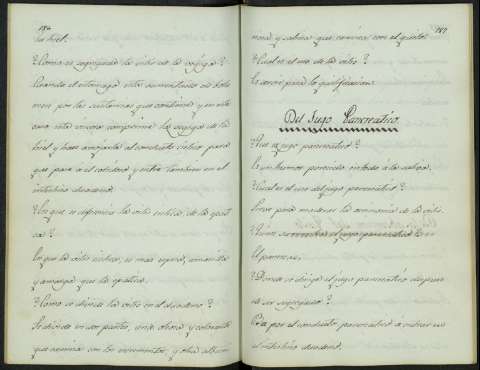 186
la hiel.
¿Como es segregada la vilis de la vegiga?
Quando el estomago está aumentado de volu
men por las sustancias que contiene y en este
caso esta viscera comprime la vegiga de la
hiel y hace arrojarla al conducto cistico para
que pase a el coledoco y entre tambien en el
intestino duodeno.
¿En que se diferencia la vilis cistica de la epati
ca?
En que la vilis cistica es mas espesa, amarilla
y amarga que la epatica.
¿Como se divide la vilis en el duodeno?
Se divide en dos partes, una obscura y colorante
que camina con los excrementos, y otra albumi
187
nosa y salina que camina con el quilo.
¿Cual es el uso de la vilis?
Es servir para la quilificacion.
Del Jugo Pancreatico.
¿Que es jugo pancreatico?
Es un humor parecido en todo á la saliva.
¿Cual es el uso del jugo pancreatico?
Sirve para moderar la acrimonia de la vilis.
¿Quien segrega el jugo pancreatico?
El pancreas.
¿Donde se dirige el jugo pancreatico despues
de ser segregado?
por el conducto pancreatico á
el intestino duodeno.